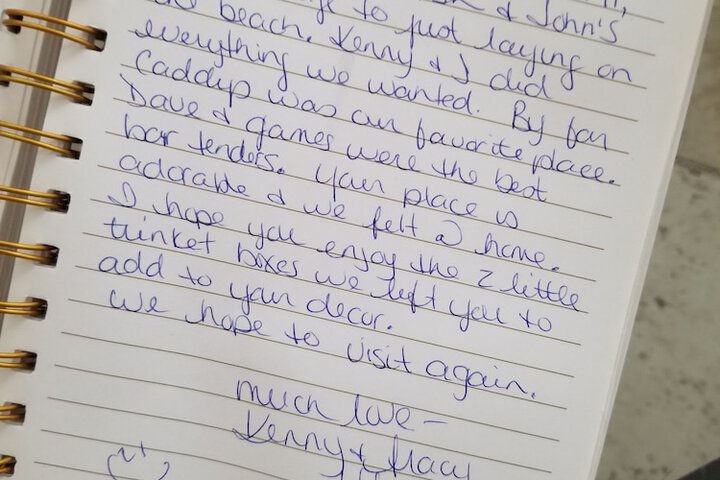 & John's
to just laying on
the beach. Kenny & I did
everything we wanted. By far
Caddyp was our favorite place.
Dave & games were the best
bar tenders. Your place is
adorable & we felt @ home.
I hope you enjoy the 2 little
trinket boxes we left you to
add to your decor.
We hope to visit again.
much love -
Kenny & Tracy